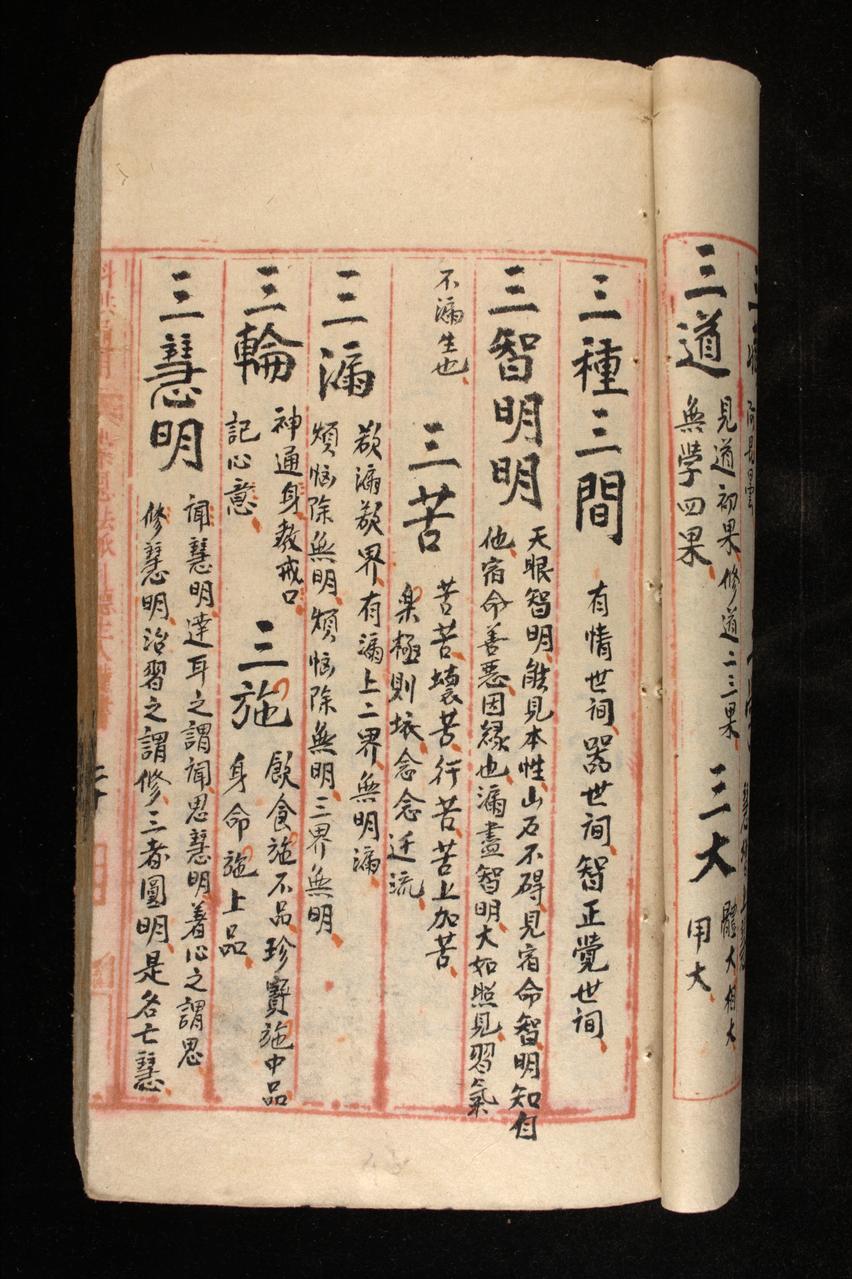 三道
見道初果修道二三果
無学四果
三大
體大相大
用大
三種三間
有情世间器世间智正覺世间
三智明明
天眼智明能見本性山石不碍見宿命智明知自
他宿命善悪因緣也漏盡智明大如照見習氣
不漏生也
三苦
苦苦壞苦行苦苦上加苦
楽極則壊念念迁流
三漏
欲漏欲界有漏上二界無明漏
煩悩除無明煩悩除無明三界無明
三輪
神通身教戒口
記心意
三施
飲食施不品珍寶施中品
身命施上品
三慧明
闻慧明達耳之謂闻思慧明著心之謂思
修慧明治習之謂修三者圓明是名亡慧